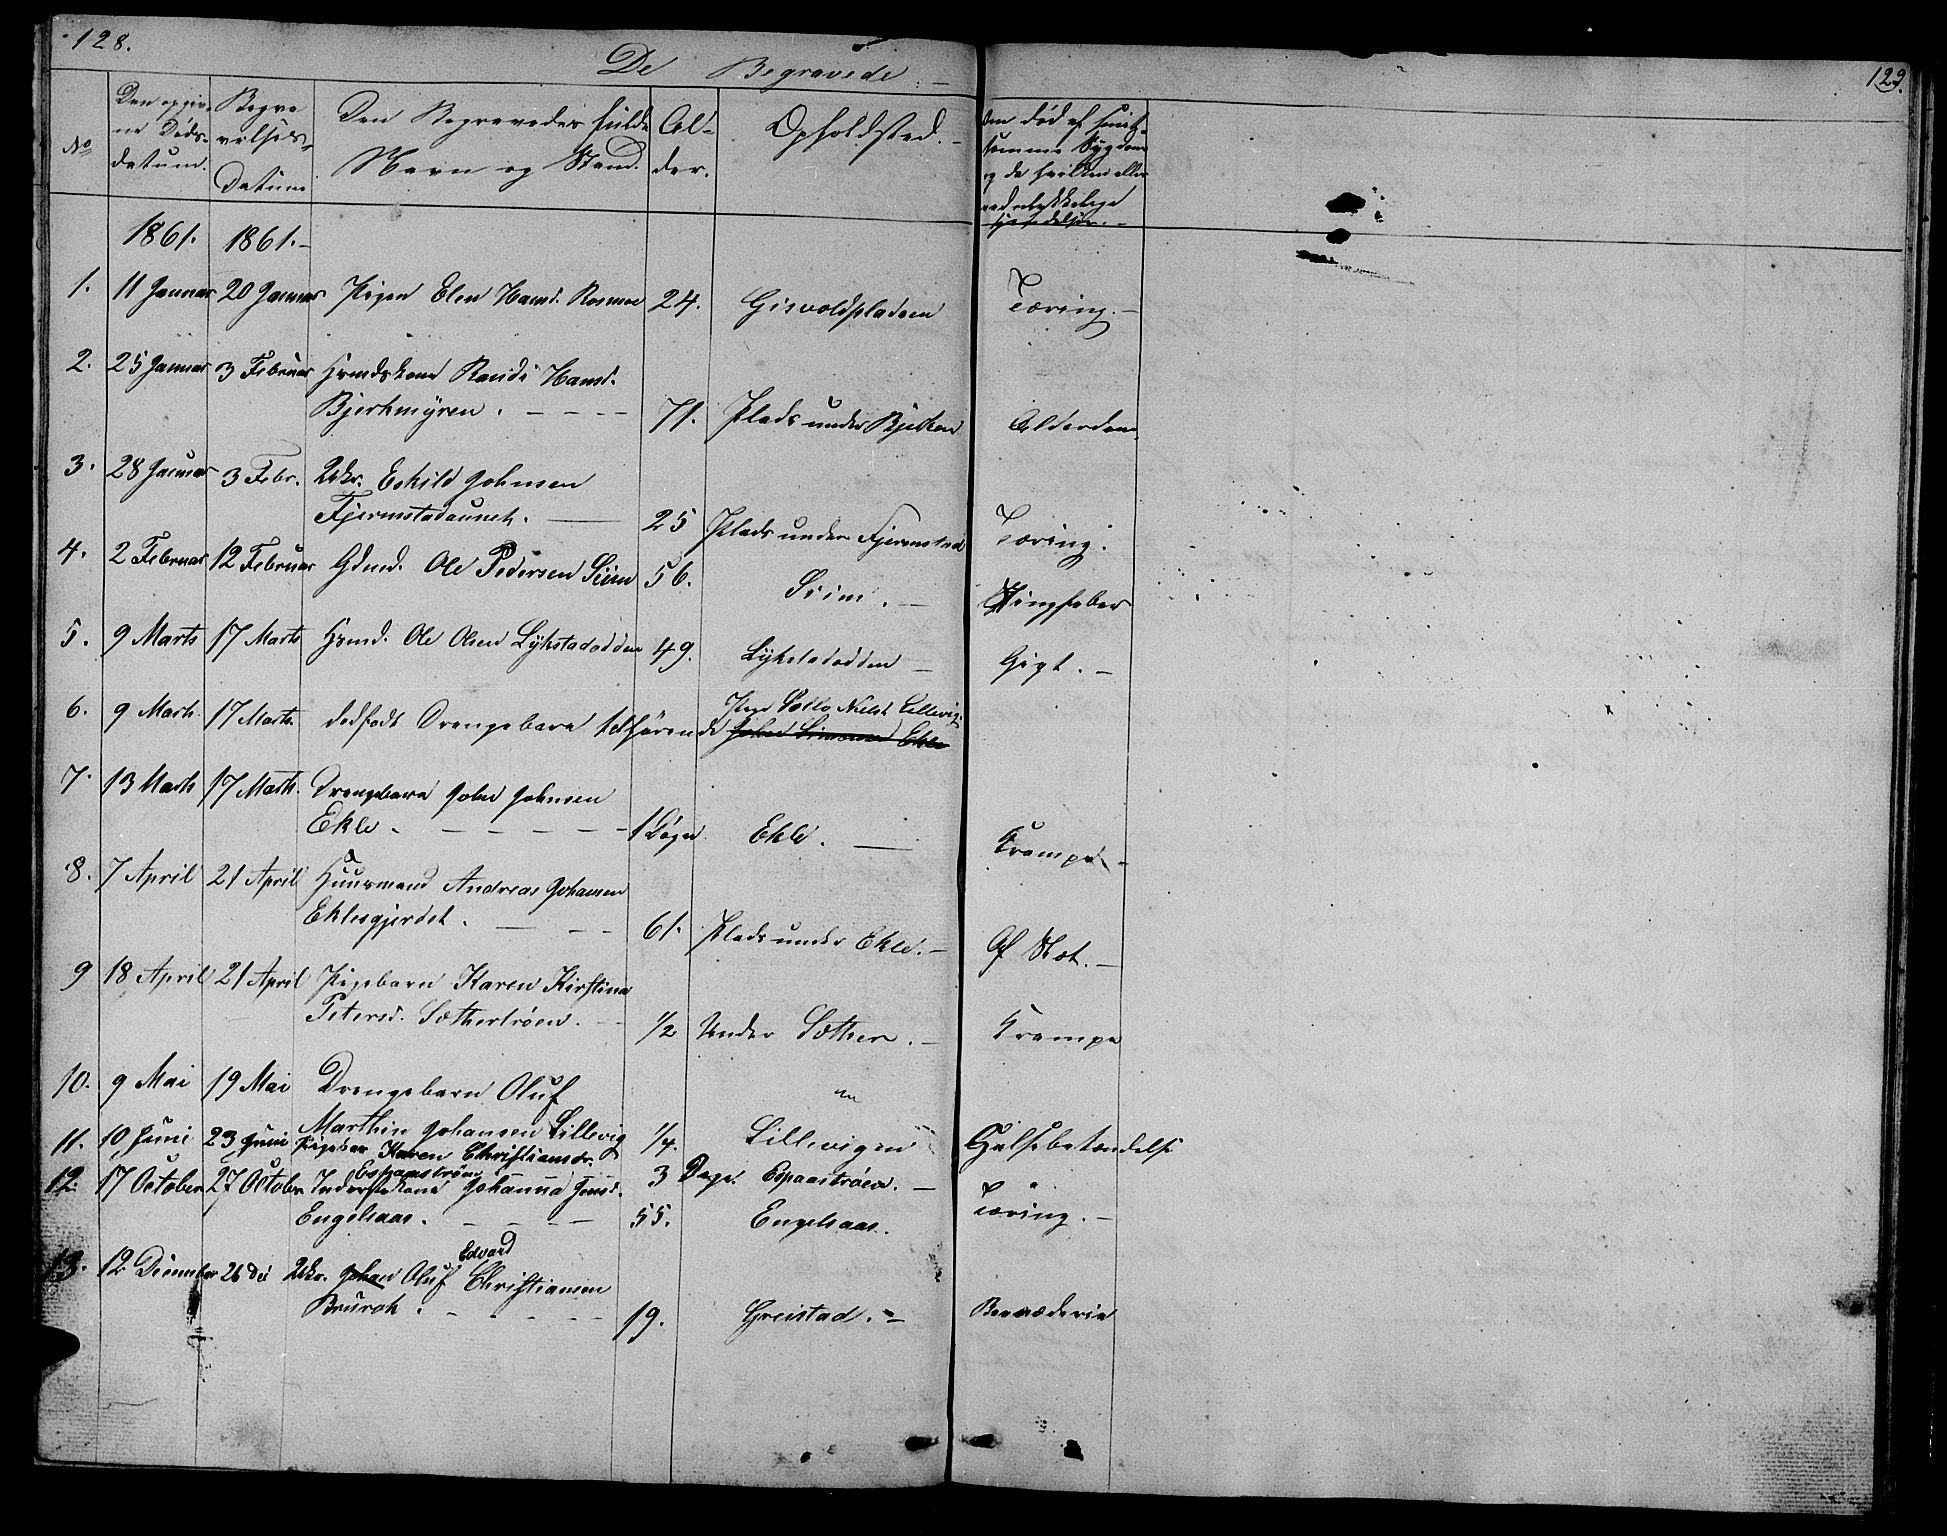 128.
De Begravede. 129.
No
Den opgivne Dødsdatum.
Begravelses Datum
Den Begravedes fulde Navn og Stand.
Alder.
Opholdsted.
Om død af smitsomme Sygdom og da hvilken eller
1861. 1861.
1. 11 Januar 20 Januar Pigen Elen Hansd. Rosmoe 24. Gisvoldpladsen Tæring.
2. 25 Januar 3 Februar Hsmdskone Randi Hansd.
Bjerkmyren. 71. Plads under Alderdom
3. 28 Januar 3 Febr. Ukr. Eskild Johnsen
Fjermstadaunet. 25 Plads under Fjermstad Tæring.
4. 2 Februar 12 Februar Gdmd. Ole Pedersen Seim 56. Seim.
5. 9 Marts 17 Marts Hsmd. Ole Olsen Lykstadodden 49. Lykstadodden Gigt.
6. 9 Marts 17 Marts. dødfødt Drengebarn tilhørende Nilsd. Lillevig.
7. 13 Marts 17 Marts. Drengebarn John Johnsen
Ekle. 1 Døgn. Ekle. Krampe
8. 7 April 21 April Huusmand Andreas Johansen
Eklesgjerdet. 61. Plads under Ekle. Af Slet.
9 18 April 21 April Pigebarn Karen Kirstina
Petersd. Sætherstrøen. 1/2 Under Sæther. Krampe
10. 9 Mai 19 Mai Drengebarn Oluf
Marthin Johansen Lillevig 1/4 Lillevigen Halsebetændelse
11. 10 Juni 23 Juni Pigebar Karen Christiansdr.
Espaastrøen 3 Dage. Espaastrøen. "
12. 17 October 27 October Inderstkone Johanna Jonsd.
Engelsaas. 55. Engelsaas. Tæring.
13. 12 December 26 De Ukr. Johan Oluf Edvard Christiansen
Brurok. 19. Greistad.